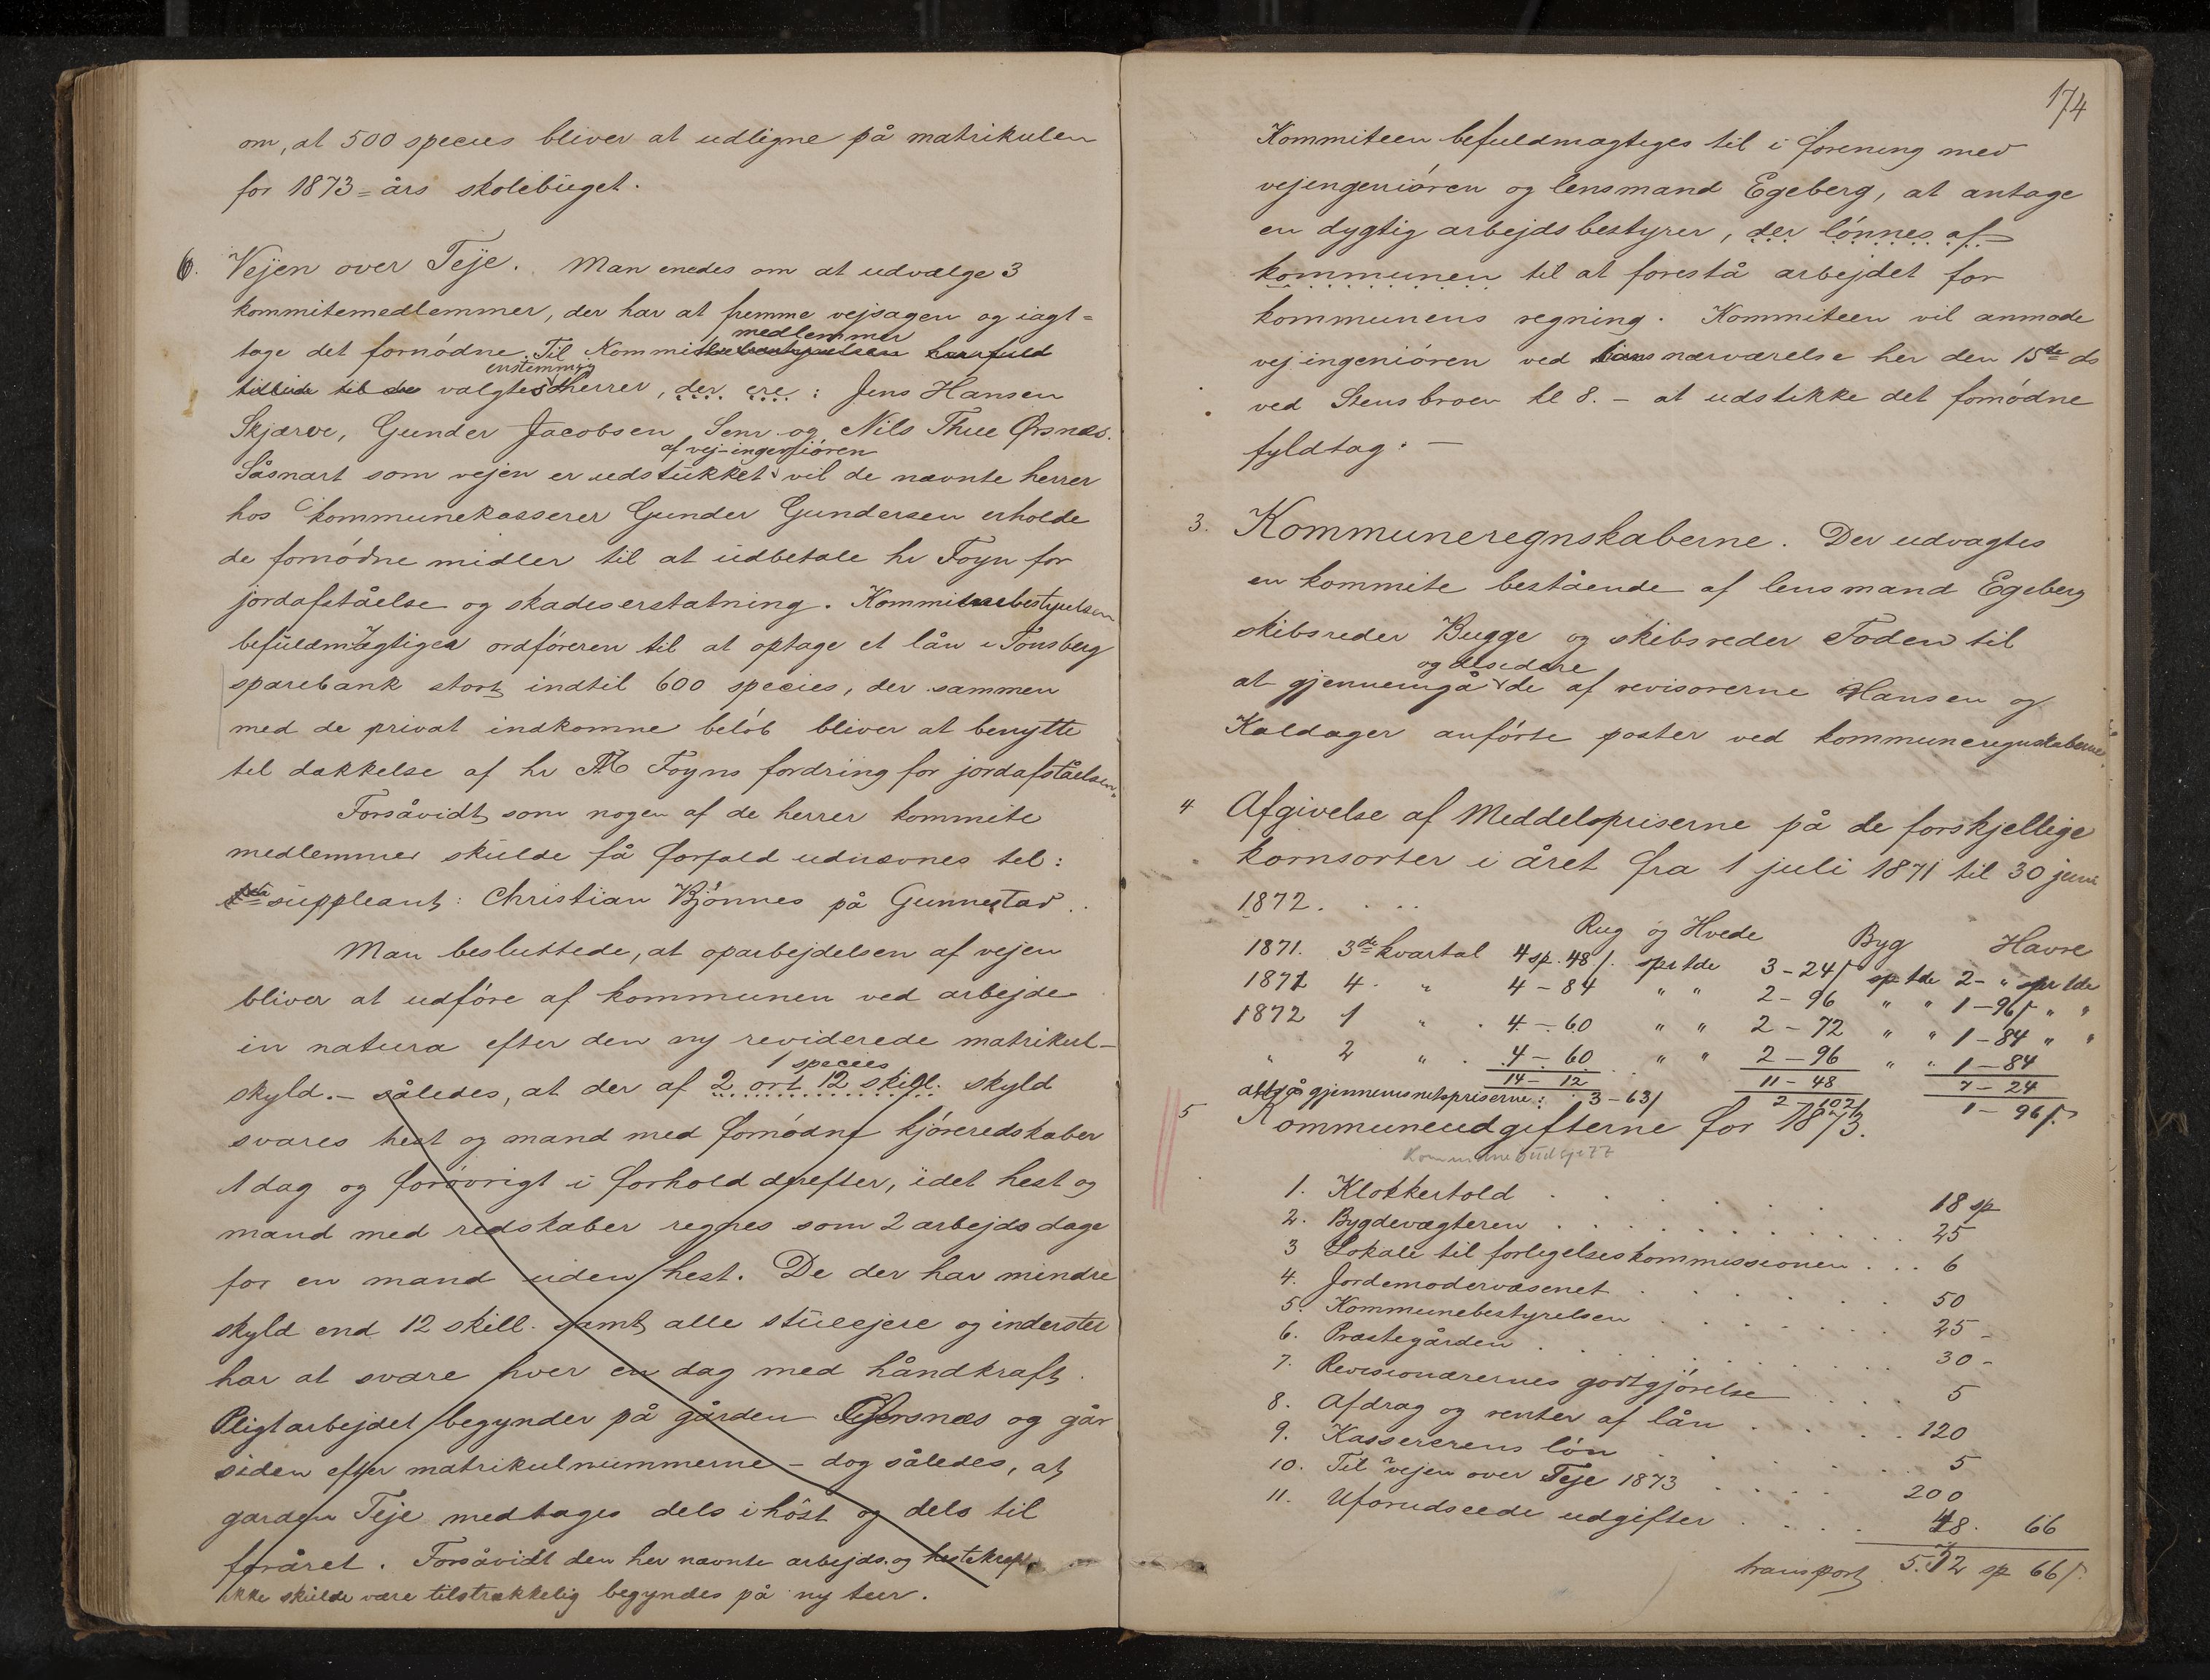 om, at 500 species bliver at udligne på matrikulen
for 1873-års skolebüget.
6. Vejen over Teje. Man enedes om at udvælge 3
kommitemedlemmer, der har at fremme vejsagen og iagt=
tage det fornødne. Til Kommite
medlemmer
enstemmig
valgtes herrer, der ere: Jens Hansen
Skjærve, Gunder Jacobsen Sem og Nils Thue Ørsnæs.
af vej-ingeniøren
Såsnart som vejen er udstükket vil de nævnte herrer
hos kommunekasserer Gunder Gundersen erholde
de fornødne midler til at üdbetale hr Foyn for
jordafståelse og skadeserstatning. Kommunebestyrelsen
befüldmægtiger ordføreren til at optage et lån i Tønsberg
sparebank stort indtil 600 species, der sammen
med de privat indkomne beløb bliver at benytte
til dækkelse af hr Foyns fordring for jordafståelsen.
Forsåvidt som nogen af de herrer kommite
medlemmer skülde få forfald udnævnes til:
süppleant: Christian Bjønnes på Gunnestad..
Man besluttede, at oparbejdelsen af vejen
bliver at udføre af kommunen ved arbejde
in natura efter den ny reviderede matrikul-
1 species
skyld.- således, at der af 2 ort 12 skill. skyld
svares hest og mand med fornødne kjøreredskaber
1 dag og forøvrigt i forhold derefter, idet hest og
mand med redskaber regnes som 2 arbejdsdage
for en mand uden hest. De der har mindre
skyld end 12 skill. samt alle stüeejere og inderster
har at svare hver en dag med håndkraft.
Pligtarbejdet begynder på gården Ørsnæs og går
siden efter matrikulnummerne - dog således, at
garden Teje medtages dels i høst og dels til
foråret. Forsåvidt den her nævnte arbejds. og hestekraft
ikke skülde være tilstrækkelig begyndes på ny tur.
174
Kommiteen befuldmægtiges til i forening med
vejingeniøren og lensmand Egeberg, at antage
en dygtig arbejdsbestyrer, der lønnes af
kommunen til at forestå arbejdet for
kommunens regning. Kommiteen vil anmode
vejingeniøren ved hans nærværelse her den 15de ds
ved Stensbroen kl 8. - at udstikke det fornødne
fyldtag. -
3. Kommuneregnskaberne. Der udvagtes
en kommite bestående af lensmand Egeberg
skibsreder Bugge og skibsreder Foden til
og desidere
at gjennemgå de af revisorerne Hansen og
Kaldager anførte poster ved kommuneregnskaberne.
4 Afgivelse af Meddelspriserne på de forskjellige
kornsorter i året fra 1 juli 1871 til 30 juni
1872. . . .
Rug og Hvede Byg Havre
1871. 3de kvartal 4 sp. 48 /. spr tde 3-24/ sp tde 2- " spr tde
1871 4. " 4-84 " " 2-96 " " 1-96/ " "
1872 1 " . 4-60 " " 2-72 " " 1-84 " "
" 2 " . 4-60 " " 2-96 " " 1-84
14-12 11-48 7-24
altså gjennemsnetspriserne: 3-63/ 2-102/ 1-96/.
5 Kommuneudgifterne for 1873.
Kommunebudsjett
1. Klokkertold . . . . 18 sp
2. Bygdevægteren . . . . 25
3 Lokale til forligelseskommissionen . . . 6
4. Jordemodervæsenet . . . . 50
5. Kommunebestyrelsen . . . . 25 -
6. Præstegården . . . . 30 -
7. Revisionærernes godtgjørelse . . . 5
8. Afdrag og renter af lån . . . . 120
9. Kassererens løn . . . . 5
10. Til vejen over Teje 1873 . . . . 200
11. Uforudseede udgifter . . . . 48. 66
transport 5.32 sp 66/.